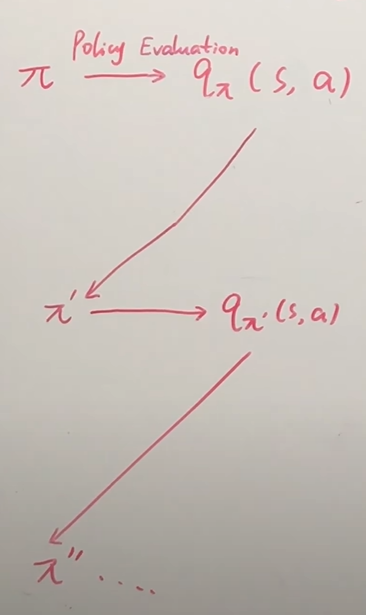 Policy Evaluation
π → qπ (s, a)
π' → qπ' (s, a)
π'' ....